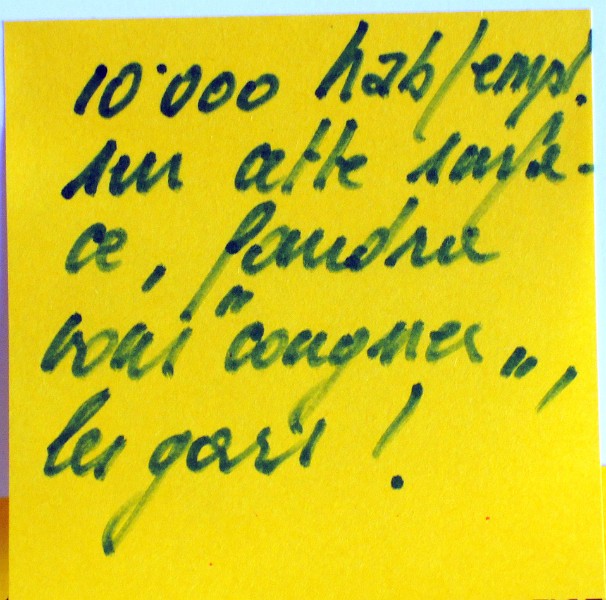 10'000 hab/empl.
sur cette surfa-
ce, faudra
vous "cougner",
les gars !